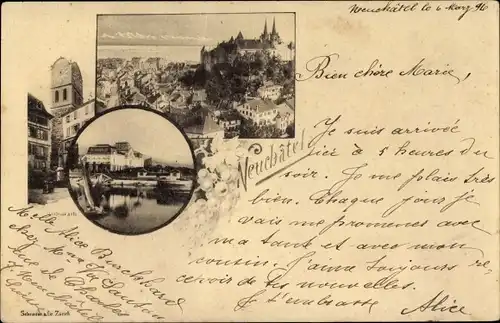 Neuchâtel le 6 Mars 96
Bien chère Marie,
Je suis arrivée
ici à 5 heures du
soir. Je me plais très
bien. Chaque jour je
vais me promener avec
ma tante et avec mon
cousin. J'aime toujours re,
cevoir de tes nouvelles.
Je t'embrasse
Alice
Neuchâtel
Alice Burckhard
chez
Rue de
Neuchâtel